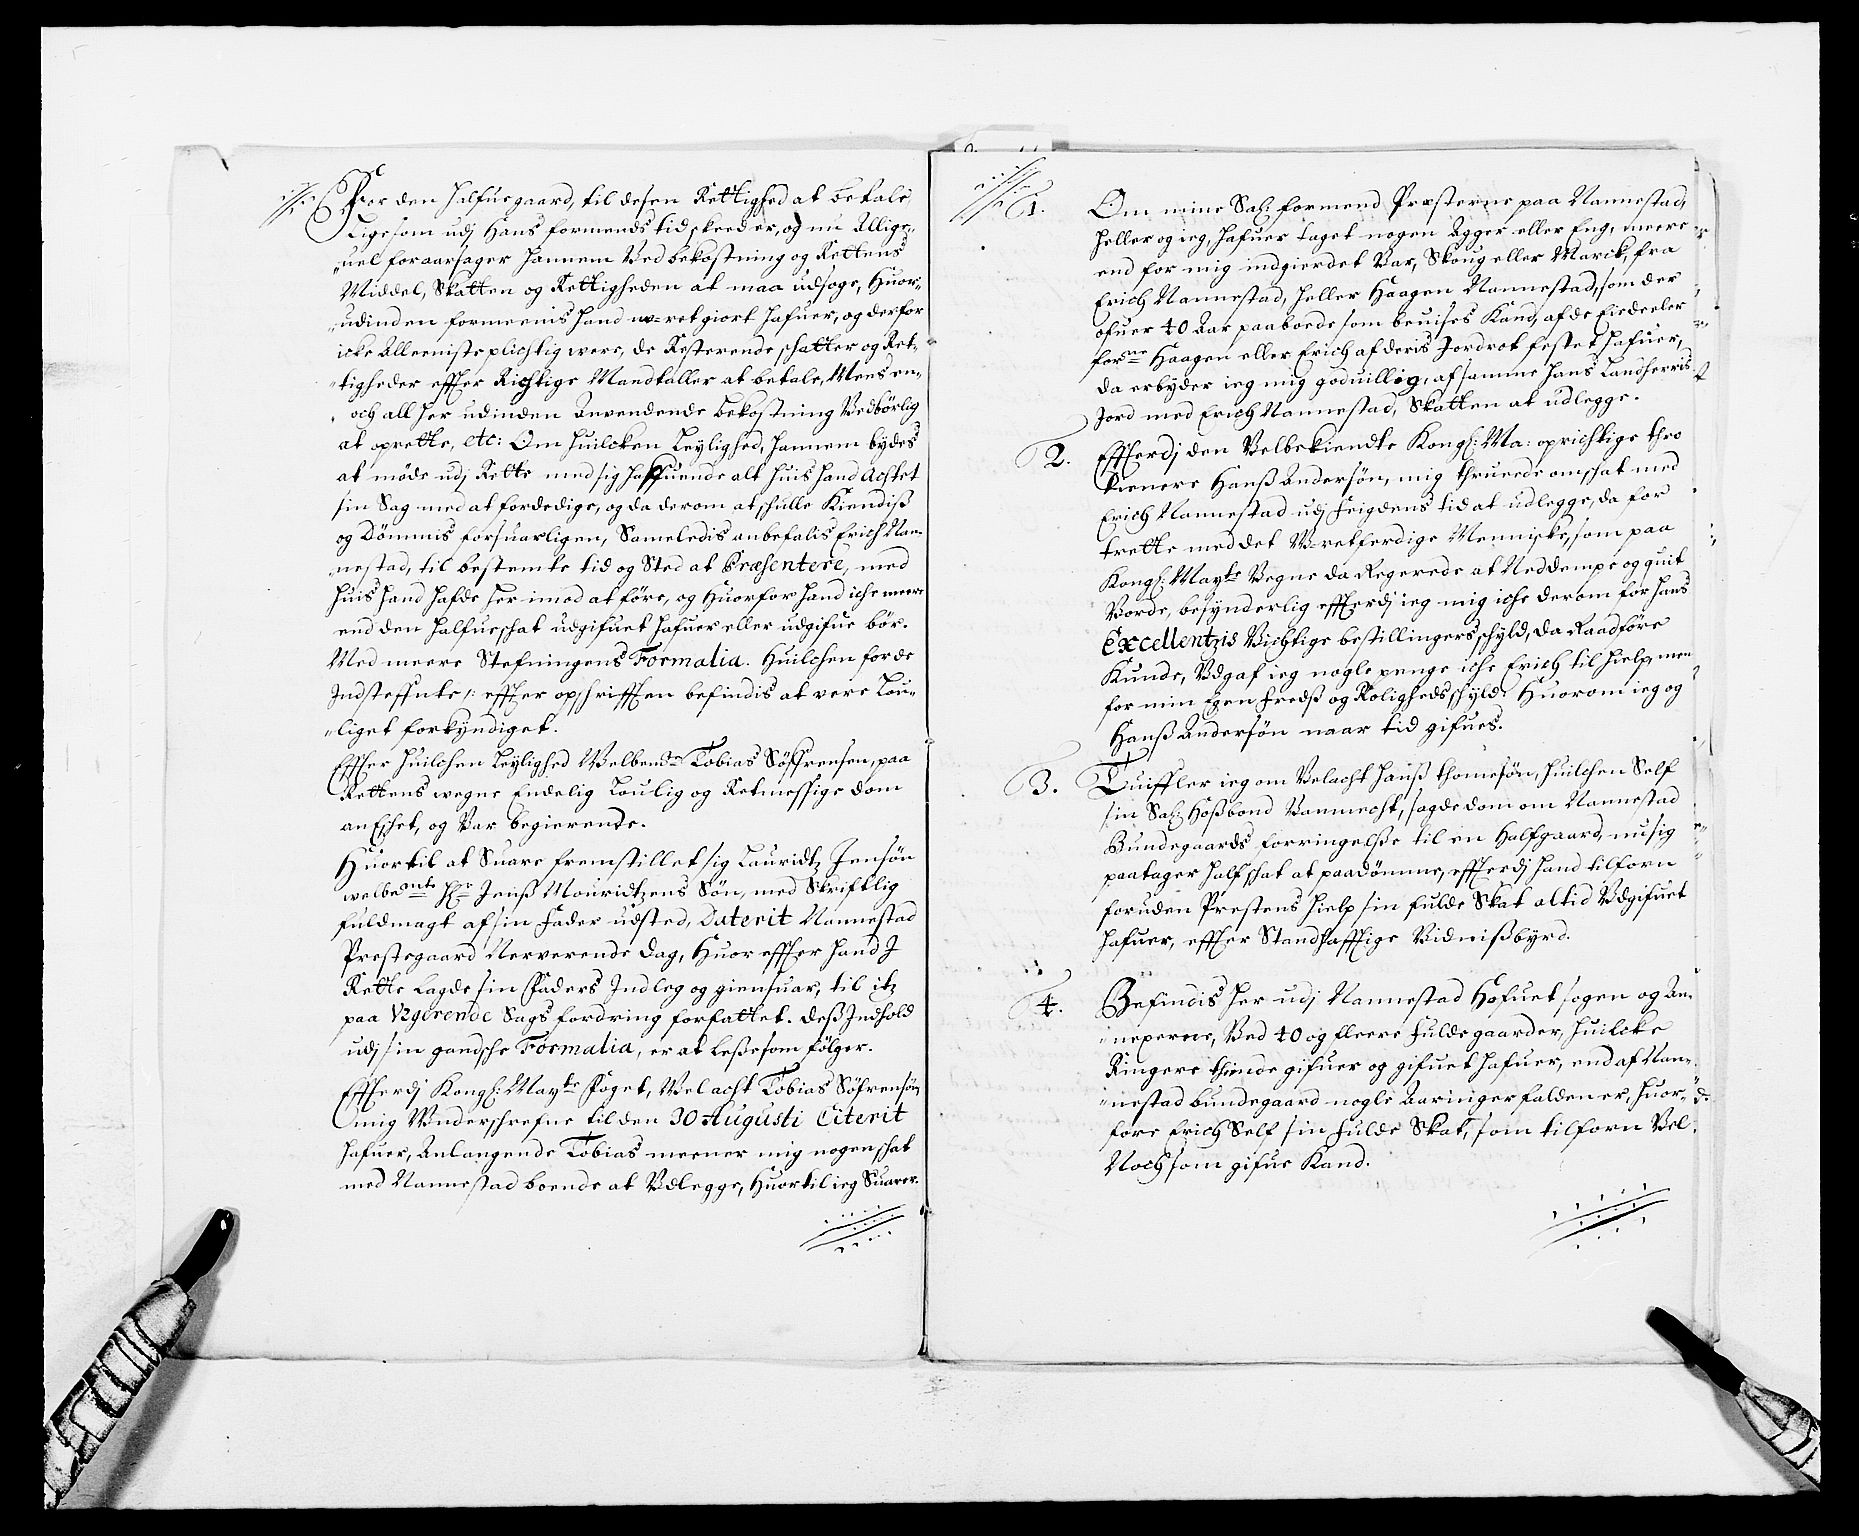 For den halfue gaard, til desen Rettighed at betale
Ligesom udj Hans formends tid skeed er, og nu Allige„
„uel foraarsager hannem Ved bekostning og Rettens
Middel, Skatten og Rettigheden at maa udsøge, Huor„
„udinden formeenis hand w=ret giort hafuer, og derfor
icke Alleeniste plichtig were, de Resterende schatter og Ret„
„tigheder effter Richtige Mandtaller at betale, Mens en„
och all her udinden Anvendende bekostning Vedbörlig
at oprette, etc: Om huilcken Leylighed, hannem bydes
at møde udj Rette med sig haffuende alt huis hand Achtet
sin Sag med at fordedige, og da derom at schulle Kiendiß
og Dömmis forsuarligen, Sameledis anbefalis Erich Nan„
„nestad, til bestemte tid og Sted at Præsentere, med
huis hand hafde her imod at före, og Huorfor hand iche meere
end den halfue schat udgifuet hafuer eller udgifue bör.
Med meere Stefningens Formalia. Huilchen forde
Indsteffnte, effter opschrifften befindis at vere Lou„
„liget forkyndiget.
Effter huilchen Leylighed Welbemde Tobias Söffrensen, paa
Rettens wegne Endelig Loulig og Retmessige dom
an Eschet, og Var begierende.
Huortil at Suare fremstillet sig Lauridtz Jensön
welbemte Hr Jenß Mouridtzens Sön, med Skriftlig
fuldmagt af sin Fader udsted, Daterit Nannestad
Prestegaard Nerverende dag, Huor effter hand J
Rette Lagde sin Faders Indleg og giensuar, til itz
paa Vigerende Sags fordring forfattet. deß Indhold
udj sin gandsche Formalia, er at Leße som fölger.
Effterdj Kongl: Mayts Foget, Vel acht Tobias Söfrensön
mig Vnderschrefne til den 30 Augusti Citerit
hafuer, Anlangende Tobias meener mig nogen schat
med Nannestad boende at Vdlegge, Huortil ieg Suarer.
1. Om mine Sal: formend Præsterne paa Nannestad,
heller og ieg, hafuer taget nogen Agger eller Eng, meere
end for mig indgierdet Var, Skoug eller Marck, fra
Erich Nannestad, heller Haagen Nannestad, som der
ofuer 40 Aar paaboede som beuises Kand, af de Eiedeeler
forne Haagen eller Erich af deris Jordrot festet hafuer,
da erbyder ieg mig goduillig, af samme hans Landherris
Jord med Erich Nannestad, Skatten at udlegge.
2. Effterdj den Velbekiendte Kongl: Ma: oprichtige thro
tienere Hanß Andersön, mig thruede om schat med
Erich Nannestad udj Feigdens tid at udlegge, da for
trette med det V=retferdige Menniske, som paa
Kongl: Mayts Vegne da Regerede at Neddempe og quit
Vorde, besÿnderlig effterdj ieg mig iche derom for hans
Excellentzis Vichtige bestillingers schyld, da Raadföre
Kunde, Vdgaf ieg nogle penge iche Erich til hielp, men
for min Egen Fredß og Roligheds schyld. Huorom ieg og
Hanß Andersön naar tid gifues.
3. Tuiffler ieg om Velacht Hanß thomesön, huilchen Self
sin Sal: Hoßbond Vanmecht, sagde dom om Nannestad
Bundegaards forringelße til en Halfgaard, nu sig
paatager half schat at paadömme, effterdj hand tilforn
foruden Prestens hielp sin fulde Skat altid Vdgifuet
hafuer, effter Standhafftige Vidnißbÿrd.
4. Befindis her udj Nannestad Hofuet sogen og An„
„nexerne, Ved 40 og fleere Fulde gaarder, huilcke
Ringere thiende gifuer og gifuet hafuer, end af Nan„
„nestad bundegaard nogle Aaringer falden er, huor„
fore Erich Self sin Fulde Skat, som tilforn Vel
Noch som gifue Kand.